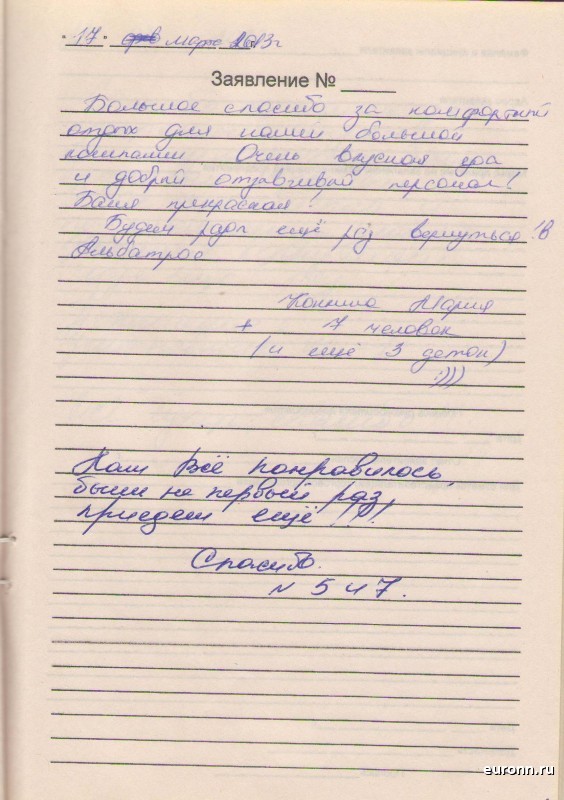 "17" марта 2013 г
Заявление № ____
Большое спасибо за комфортный
отдых для нашей большой
компании. Очень вкусная еда
и добрый отзывчивый персонал!
Баня прекрасная!
Будем рады ещё раз вернуться в
Альбатрос
Мария
+ 7 человек
(и ещё 3 деток)
:)))
Нам всё понравилось,
были не первый раз,
приедем ещё!!!
Спасибо.
N 5 и 7.
euronn.ru